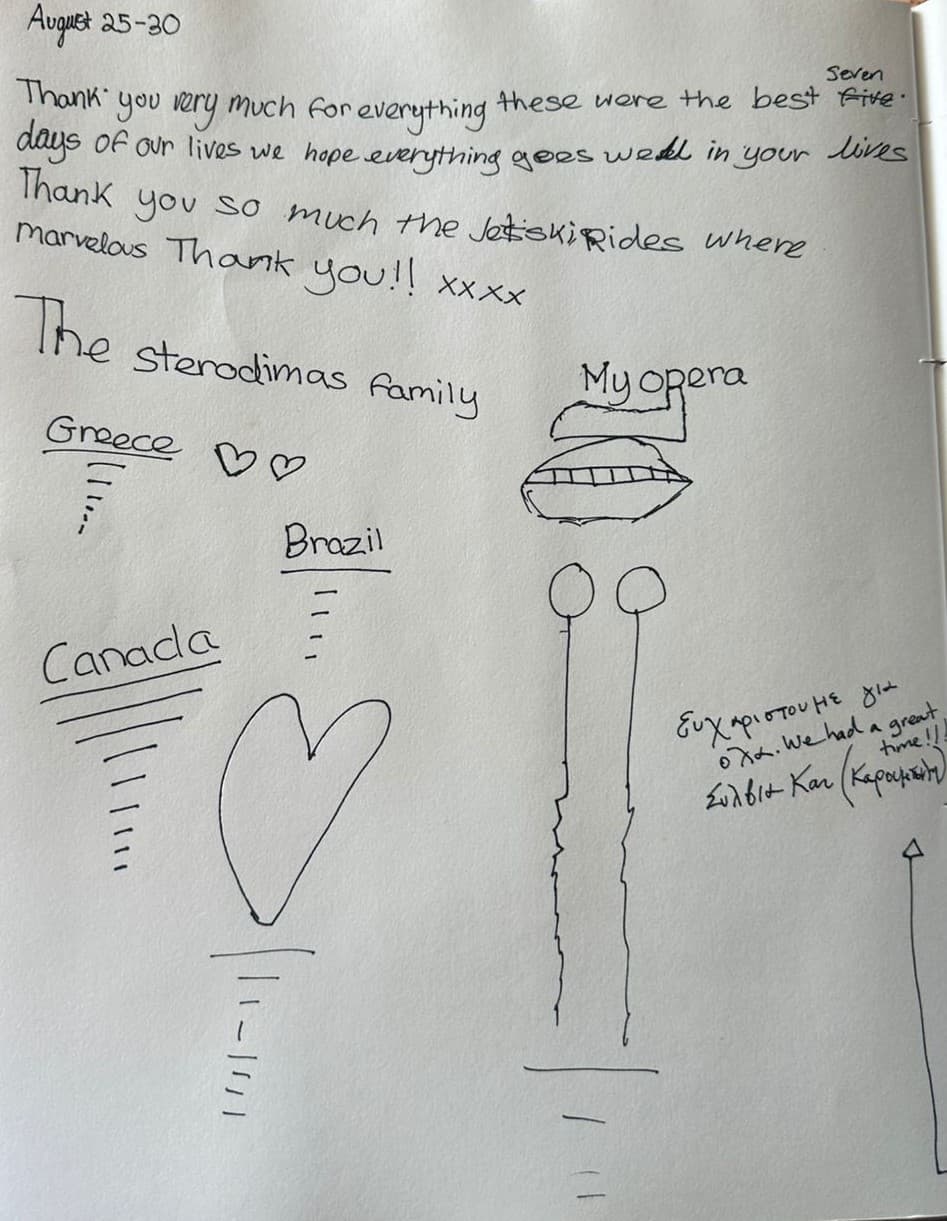 August 25-30
Seven
Thank you very much for everything these were the best five
days of our lives we hope everything goes well in your lives
Thank you so much the Jetski Rides where
marvelous Thank you!! xxxx
The sterodimas family
My opera
Greece
Brazil
Canada
Ευχαριστουμε για
ολα. We had a great
time!!!
Συλβια Και